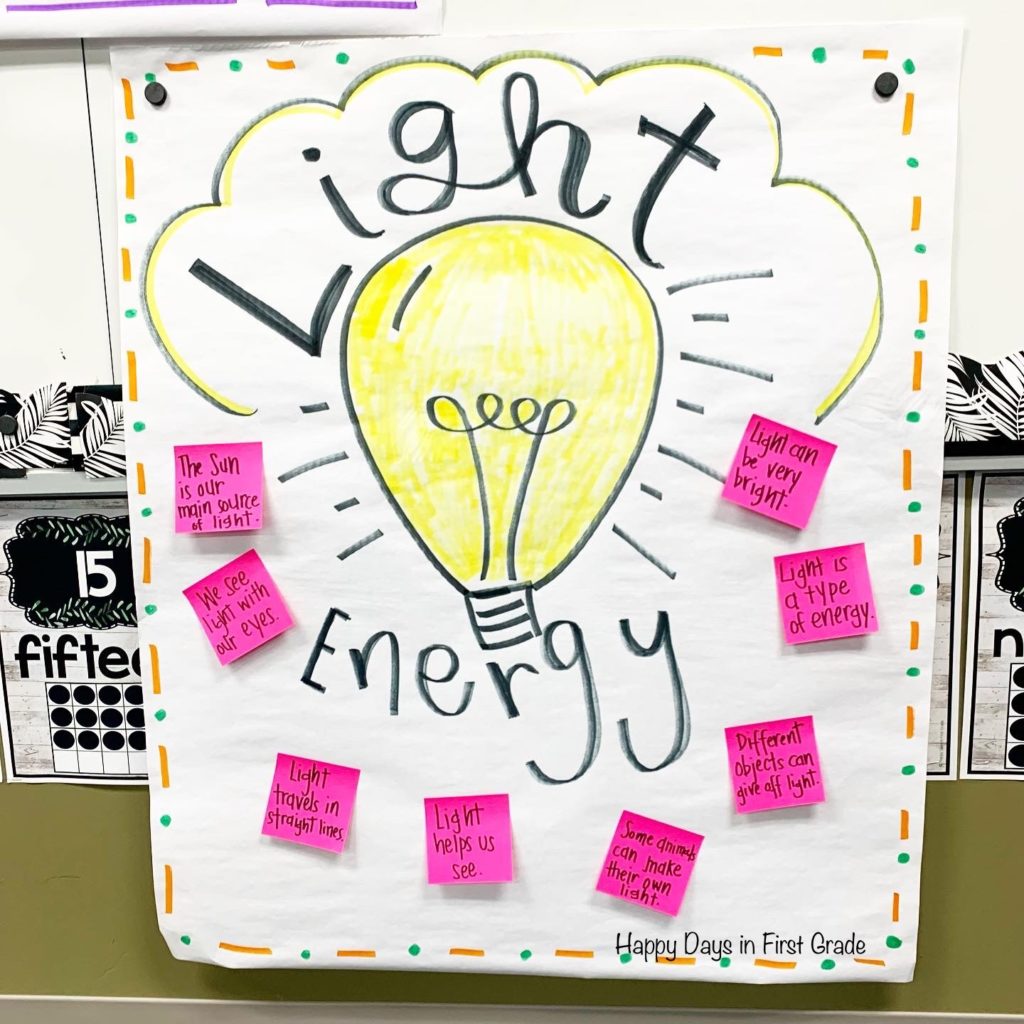 Light
Energy
The Sun
is our
main source
of light.
We see
light with
our eyes.
Light
travels in
straight lines.
Light
helps us
see.
Some animals
can make
their own
light.
Different
objects can
give off light.
Light is
a type
of energy.
Light can
be very
bright.
15
fiftee
n
Happy Days in First Grade